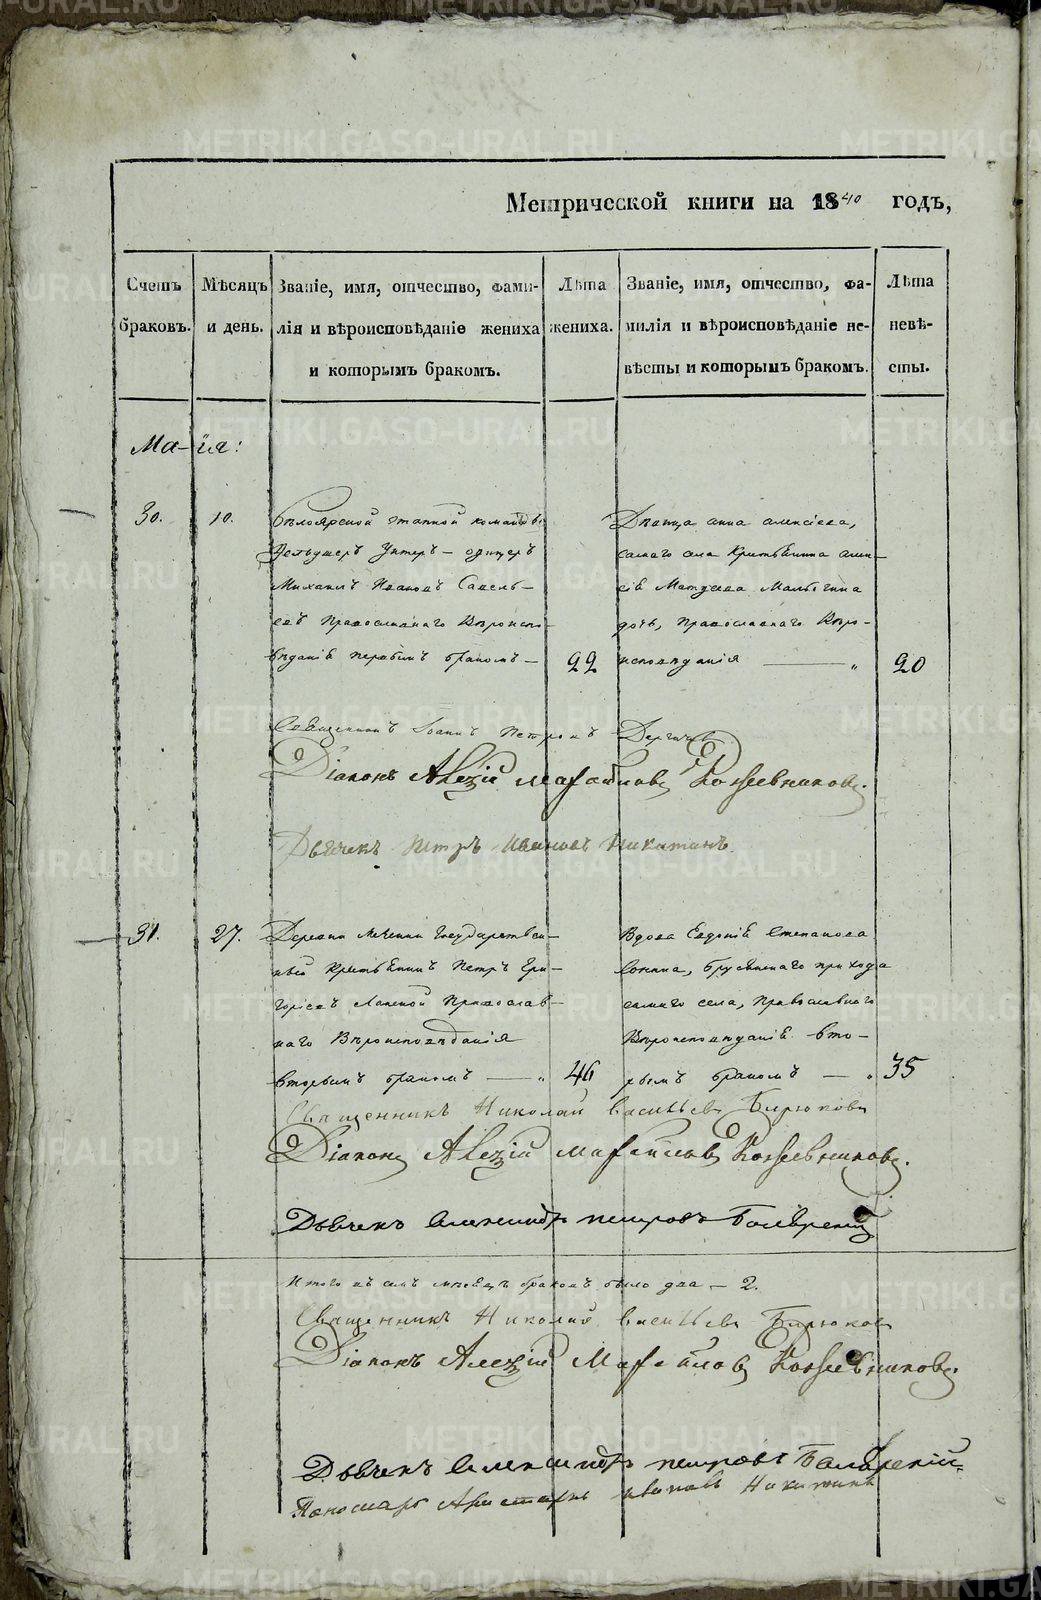 Метрической книги на 1840 годъ,
Счетъ браковъ.
Мѣсяцъ и день.
Званіе, имя, отчество, фами-
лія и вѣроисповѣданіе жениха
и которымъ бракомъ.
Лѣта
жениха.
Званіе, имя, отчество, фа-
милія и вѣроисповѣданіе не-
вѣсты и которымъ бракомъ.
Лѣта
невѣ-
сты.
Маія:
30.
10.
Бѣлоярской этапной команды
Унтеръ-офицеръ
Михаилъ Ивановъ Савель-
евъ Православнаго Вѣроиспо-
вѣданія первымъ бракомъ —
22
Дѣвица Анна Алексіева,
самаго села Крестьянина Алек-
сія Матѳеева Мальгина
дочь, Православнаго Вѣро-
исповѣданія —
20
Священникъ Іоаннъ Петровъ Дергачев
Діаконъ Алезій Маѳайловъ Кожевниковъ.
Дьячекъ Петръ Ивановъ Никитинъ
31.
27.
Деревни Государствен-
ный Крестьянинъ Петръ Гри-
горіевъ Православ-
наго Вѣроисповѣданія
вторымъ бракомъ —
46
Вдова Евдокія Степанова
прихода
самаго села, Православнаго
Вѣроисповѣданія вто-
рымъ бракомъ —
35
Священникъ Николай Васильевъ Бирюковъ
Діаконъ Алезій Маѳайловъ Кожевниковъ.
Дьячекъ Александръ Петровъ
Итого въ семъ мѣсяцѣ браковъ было два — 2.
Священникъ Николай Васильевъ Бирюковъ
Діаконъ Алезій Маѳайловъ Кожевниковъ.
Дьячекъ Александръ Петровъ
Пономарь Аристархъ Ивановъ Никитинъ
METRIKI.GASO-URAL.RU